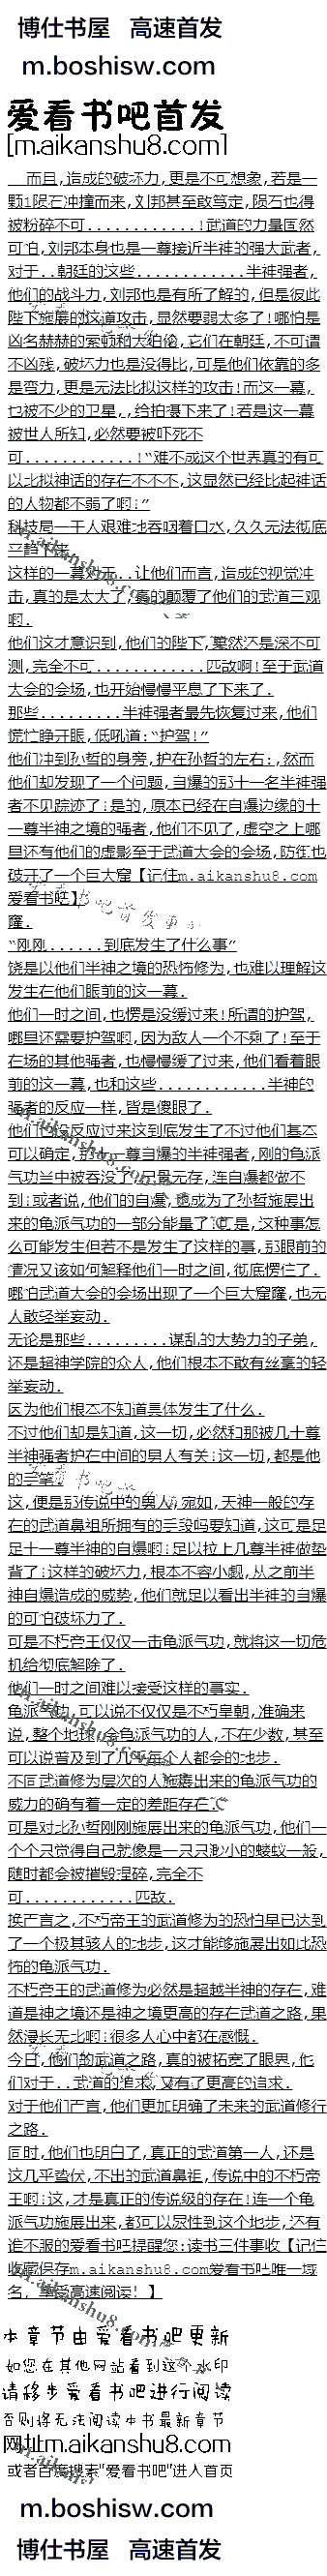 博仕书屋 高速首发
m.boshisw.com
爱看书吧首发
[m.aikanshu8.com]
而且,造成的破坏力,更是不可想象,若是一
颗1陨石冲撞而来,刘邦甚至敢笃定,陨石也得
被粉碎不可............!武道的力量固然
可怕,刘邦本身也是一尊接近半神的强大武者,
对于..朝廷的这些............半神强者,
他们的战斗力,刘邦也是有所了解的,但是彼此
陛下施展的这道攻击,显然要弱太多了!哪怕是
凶名赫赫的索顿和大伯伦,它们在朝廷,不可谓
不凶残,破坏力也是没得比,可是他们依靠的多
是蛮力,更是无法比拟这样的攻击!而这一幕,
也被不少的卫星,,给拍摄下来了!若是这一幕
被世人所知,必然要被吓死不
可............!“难不成这个世界真的有可
以比拟神话的存在不不不,这显然已经比起神话
的人物都不弱了啊!”
科技局一干人艰难地吞咽着口水,久久无法彻底
平静下来.
这样的一幕对于..让他们而言,造成的视觉冲
击,真的是太大了,真的颠覆了他们的武道三观
啊.
他们这才意识到,他们的陛下,竟然还是深不可
测,完全不可............匹敌啊!至于武道
大会的会场,也开始慢慢平息了下来了.
那些.........半神强者最先恢复过来,他们
慌忙睁开眼,低吼道:“护驾!”
他们冲到孙哲的身旁,护在孙哲的左右:,然而
他们却发现了一个问题,自爆的那十一名半神强
者不见踪迹了!是的,原本已经在自爆边缘的十
一尊半神之境的强者,他们不见了,虚空之上哪
里还有他们的虚影至于武道大会的会场,防御也
破开了一个巨大窟【记住m.aikanshu8.com
爱看书吧】
窿.
“刚刚......到底发生了什么事”
饶是以他们半神之境的恐怖修为,也难以理解这
发生在他们眼前的这一幕.
他们一时之间,也愣是没缓过来!所谓的护驾,
哪里还需要护驾啊,因为敌人一个不剩了!至于
在场的其他强者,也慢慢缓了过来,他们看着眼
前的这一幕,也和这些............半神的
强者的反应一样,皆是傻眼了.
他们也没反应过来这到底发生了不过他们基本
可以确定,那十一尊自爆的半神强者,刚的龟派
气功当中被吞没了的已量无存,连自爆都做不
到!或者说,他们的自爆,也成为了孙哲施展出
来的龟派气功的一部分能量了!可是,这种事怎
么可能发生但若不是发生了这样的事,那眼前的
情况又该如何解释他们一时之间,彻底愣住了.
哪怕武道大会的会场出现了一个巨大窟窿,也无
人敢轻举妄动.
无论是那些.........谋乱的大势力的子弟,
还是超神学院的众人,他们根本不敢有丝毫的轻
举妄动.
因为他们根本不知道具体发生了什么.
不过他们却是知道,这一切,必然和那被几十尊
半神强者护在中间的男人有关!这一切,都是他
的手笔.
这,便是那传说中的男人,宛如,天神一般的存
在的武道鼻祖所拥有的手段吗要知道,这可是足
足十一尊半神的自爆啊!足以拉上几尊半神做垫
背了!这样的破坏力,根本不容小觑,从之前半
神自爆造成的威势,他们就足以看出半神的自爆
的可怕破坏力了.
可是不朽帝王仅仅一击龟派气功,就将这一切危
机给彻底解除了.
他们一时之间难以接受这样的事实.
龟派气功,可以说不仅仅是不朽皇朝,准确来
说,整个地球,会龟派气功的人,不在少数,甚至
可以说普及到了几乎每个人都会的地步.
不同武道修为层次的人施展出来的龟派气功的
威力的确有着一定的差距存在.
可是对比孙哲刚刚施展出来的龟派气功,他们一
个个只觉得自己就像是一只只渺小的蝼蚁一般,
随时都会被摧毁捏碎,完全不
可............匹敌.
换而言之,不朽帝王的武道修为的恐怕早已达到
了一个极其骇人的地步,这才能够施展出如此恐
怖的龟派气功.
不朽帝王的武道修为必然是超越半神的存在,难
道是神之境还是神之境更高的存在武道之路,果
然漫长无比啊!很多人心中都在感慨.
今日,他们的武道之路,真的被拓宽了眼界,他
们对于..武道的追求,又有了更高的追求.
对于他们而言,他们更加明确了未来的武道修行
之路.
同时,他们也明白了,真正的武道第一人,还是
这几乎蛰伏,不出的武道鼻祖,传说中的不朽帝
王啊!这,才是真正的传说级的存在!连一个龟
派气功施展出来,都可以尿性到这个地步,还有
谁不服的爱看书吧提醒您:读书三件事收【记住
收藏保存m.aikanshu8.com爱看书吧唯一域
名, 享受高速阅读! 】
本章节由爱看书吧更新
如您在其他网站看到这个水印
请移步爱看书吧进行阅读
否则将无法阅读本书最新章节
网址m.aikanshu8.com
或者百度搜索"爱看书吧"进入首页
m.boshisw.com
博仕书屋 高速首发